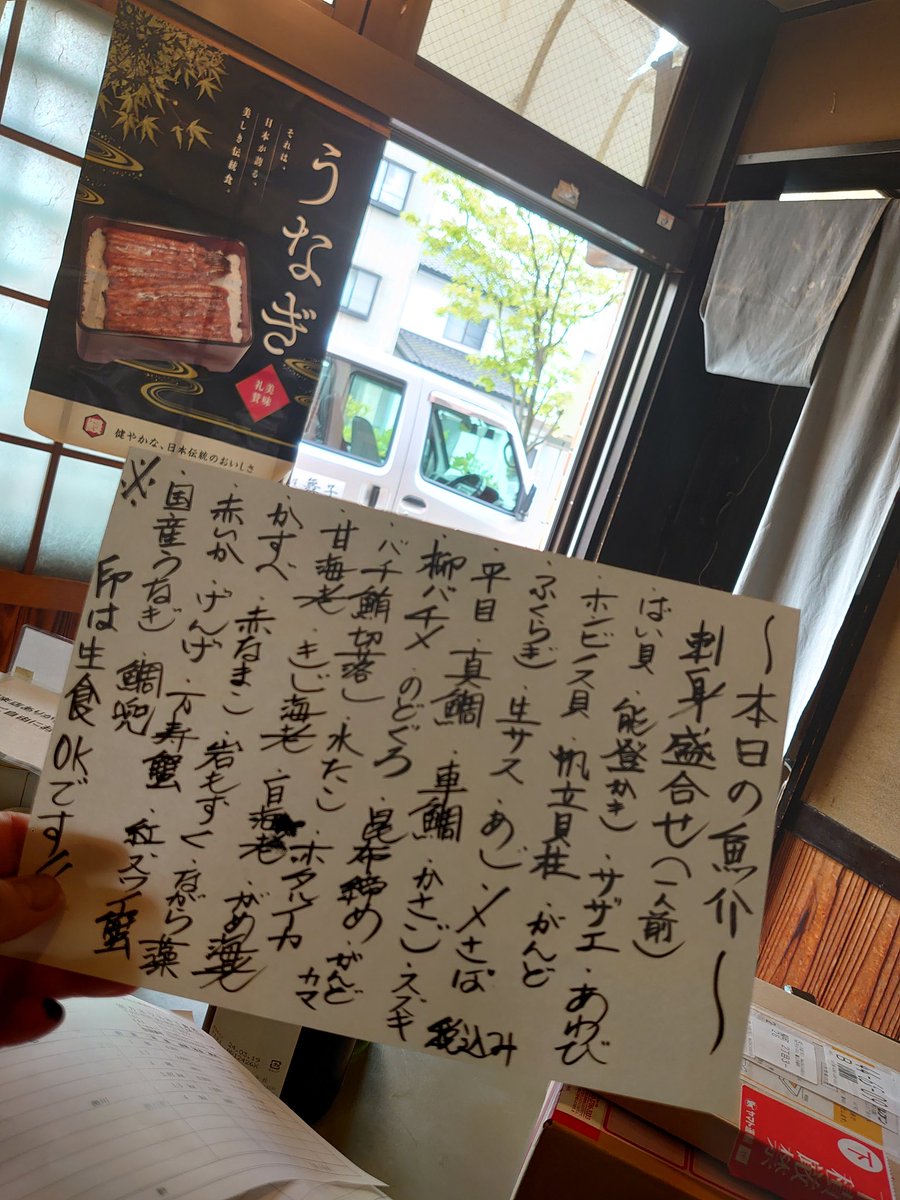 うなぎ
それは、
日本が誇る、
美しき伝統食。
美味
礼賛
健やかな、日本伝統のおいしさ
〜本日の魚介〜
刺身盛合せ(一人前)
・ばい貝 ・能登かき ・サザエ ・あわび
・ホンビノス貝 ・帆立貝柱 ・がんど
・ふくらぎ ・生サス ・あご ・〆さば
・平目 ・真鯛 ・車鯛 ・かさご ・スズキ
・柳バチメ ・のどぐろ ・昆布締め
・バチ鮪切落し ・水たこ ・ホタルイカ ・がんどカマ
・甘海老 ・きじ海老 ・白海老 ・がめ海老
・かすべ ・赤なまこ ・岩もずく ・ながら藻
・赤いか ・げんげ ・万寿蟹 ・紅ズワイ蟹
・国産うなぎ ・鯛兜
税込み
※印は生食OKです!!
24.03.19
下